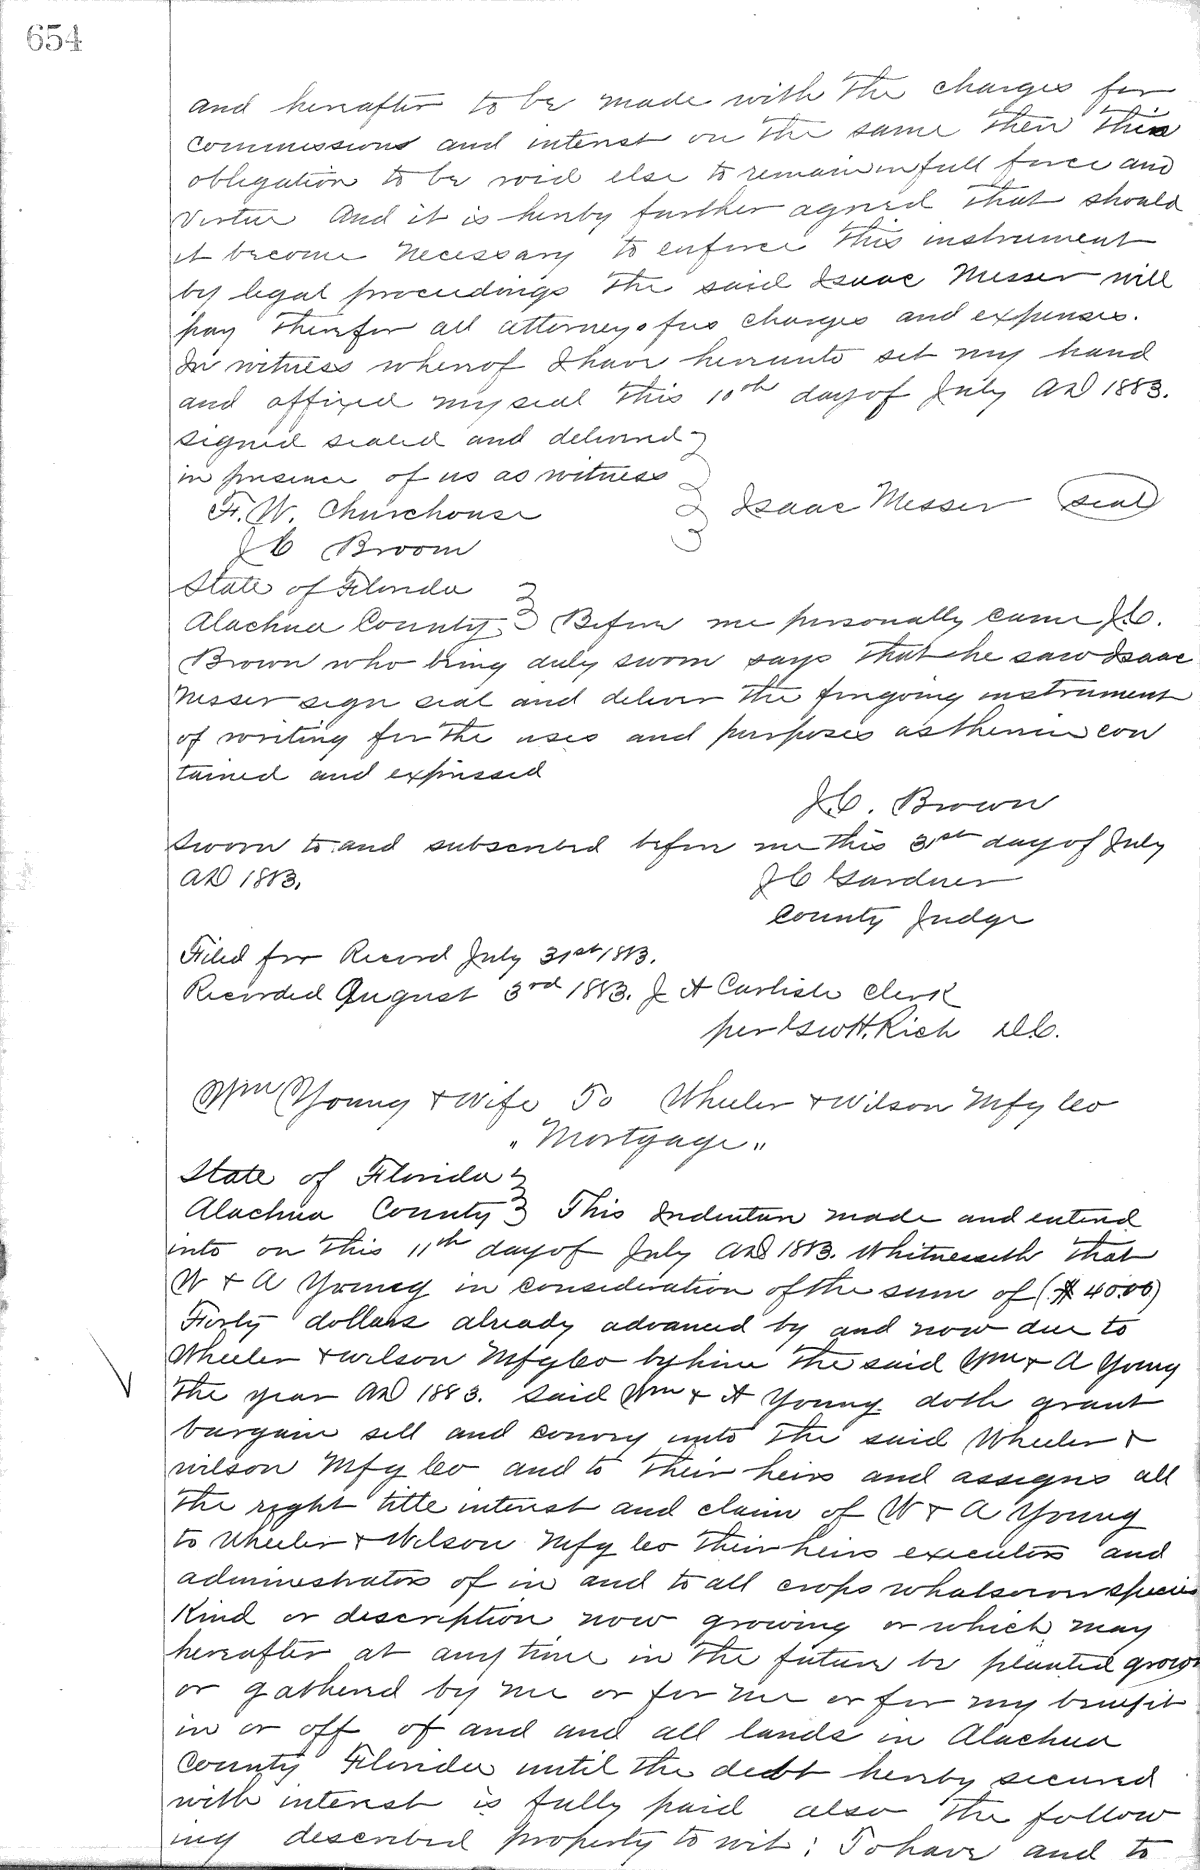 654
and hereafter to be made with the charges for
commissions and interest on the same then this
obligation to be void else to remain in full force and
virtue And it is hereby further agreed that should
it become necessary to enforce this instrument
by legal proceedings the said Isaac Messer will
pay therefor all attorneys fees charges and expenses.
In witness whereof I have hereunto set my hand
and affixed my seal this 10th day of July AD 1883.
signed sealed and delivered
in presence of us as witness
F. W. Churchouse
Isaac Messer seal
J C Broom
State of Florida
Alachua County Before me personally came J.C.
Brown who being duly sworn says that he saw Isaac
Messer sign seal and deliver the foregoing instrument
of writing for the uses and purposes as therein con
tained and expressed
J.C. Brown
Sworn to and subscribed before me this 31st day of July
AD 1883.
J C Gardner
County Judge
Filed for Record July 31st 1883.
Recorded August 3rd 1883. J A Carlisle Clerk
per Geo H. Rich D.C.
Wm Young & Wife To Wheeler & Wilson Mfg Co
"Mortgage"
State of Florida
Alachua County This Indenture made and entered
into on this 11th day of July AD 1883. Whitnesseth that
W & A Young in consideration of the sum of ($40.00)
Forty dollars already advanced by and now due to
Wheeler & Wilson Mfg Co by him the said Wm & A Young
the year AD 1883. Said Wm & A Young doth grant
bargain sell and convey unto the said Wheeler &
Wilson Mfg Co and to their heirs and assigns all
the right title interest and claim of W & A Young
to Wheeler & Wilson Mfg Co their heirs executors and
administrators of in and to all crops whatsoever species
Kind or description now growing or which may
hereafter at any time in the future be planted grown
or gathered by me or for me or for my benefit
in or off of and and all lands in Alachua
County Florida until the debt hereby secured
with interest is fully paid also the follow
ing described property to wit: To have and to